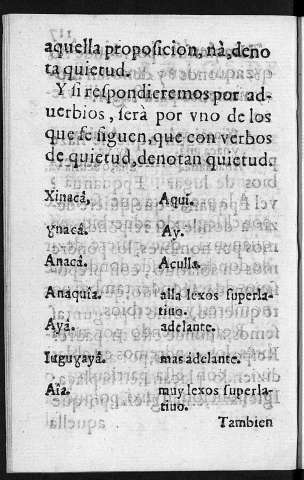 aquella proposicion, nà, deno
ta quietud.
Y si respondieremos por ad-
uerbios, serà por vno de los
que se siguen, que con verbos
de quietud, denotan quietud.
Xinacâ. Aqui.
Ynacâ. Ay.
Anacâ. Aculla.
Anaquîa. alla lexos superla-
tiuo.
Ayâ. adelante.
Iuguyayâ. mas adelante.
Aîa. muy lexos superla-
tiuo.
Tambien